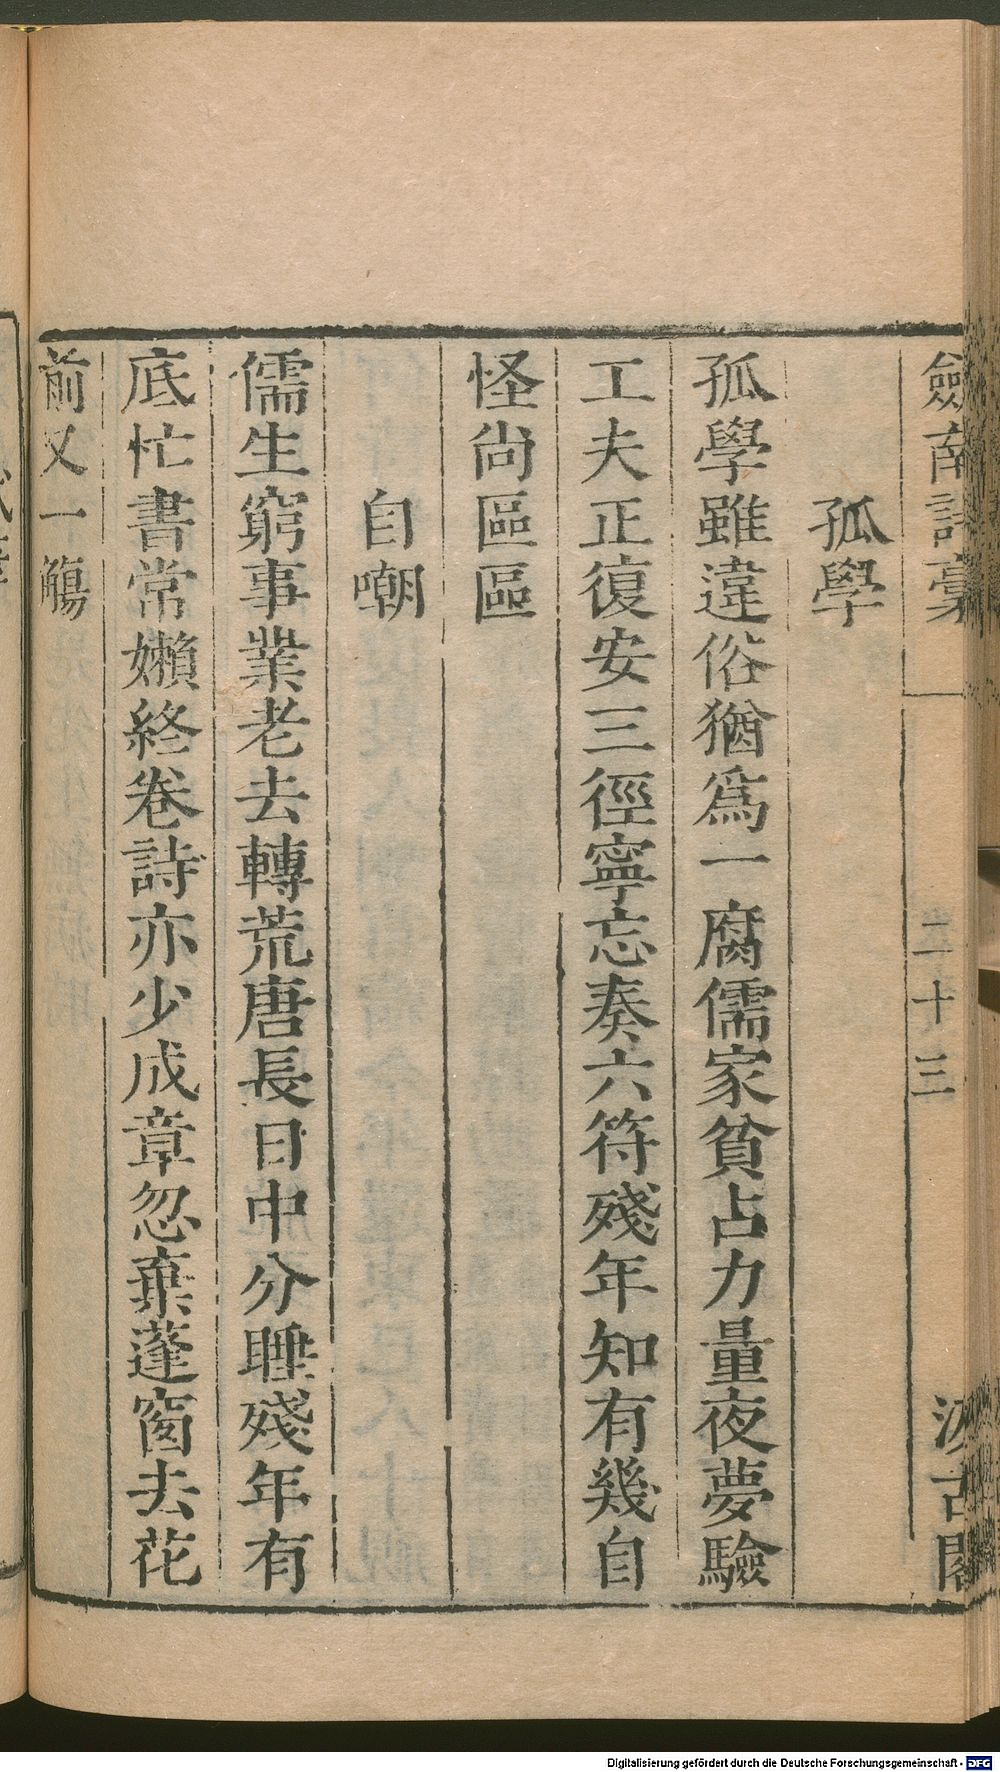 劍南詩稾
二十三
汲古閣
孤學
孤學雖違俗猶爲一腐儒家貧占力量夜夢驗
工夫正復安三徑寧忘奏六符殘年知有幾自
怪尚區區
自嘲
儒生窮事業老去轉荒唐長日中分睡殘年有
底忙書常嬾終卷詩亦少成章忽棄蓬窗去花
前又一觴
Digitalisierung gefördert durch die Deutsche Forschungsgemeinschaft - DFG